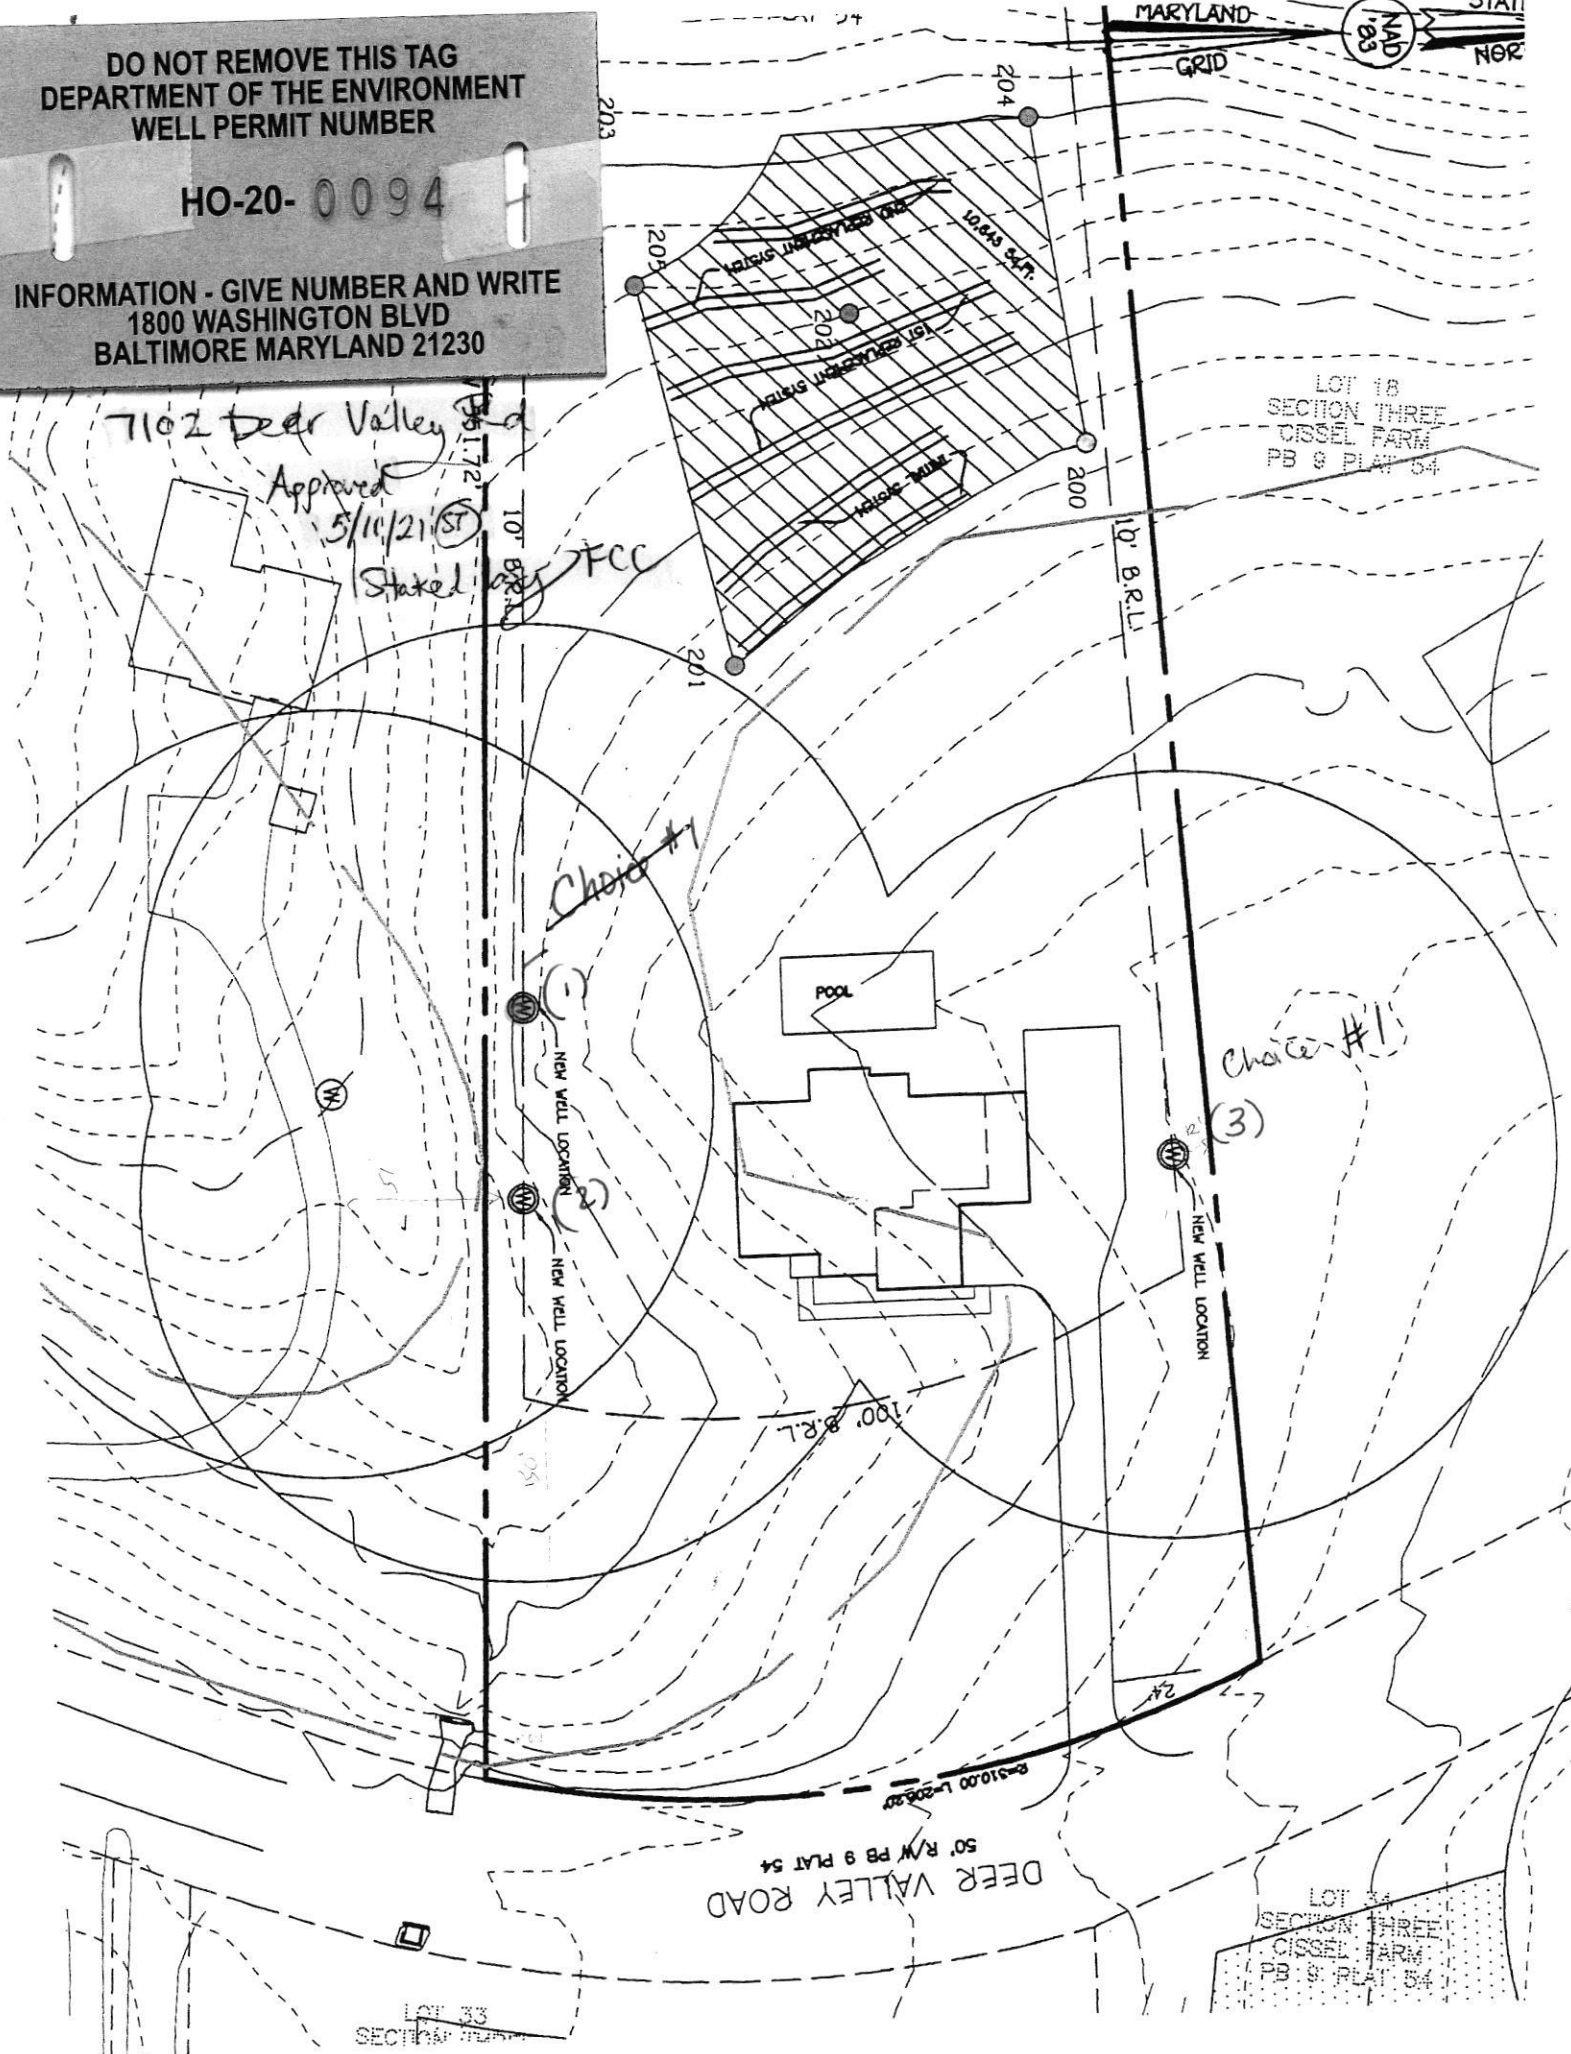 DO NOT REMOVE THIS TAG
DEPARTMENT OF THE ENVIRONMENT
WELL PERMIT NUMBER
HO-20- 0094
INFORMATION - GIVE NUMBER AND WRITE
1800 WASHINGTON BLVD
BALTIMORE MARYLAND 21230
MARYLAND
GRID
NAD
'83
203
204
205
2ND REPLACEMENT SYSTEM
10,643 Sq.Ft.
202
1ST REPLACEMENT SYSTEM
INITIAL SYSTEM
200
201
LOT 18
SECTION THREE
CISSEL FARM
PB 9 PLAT 54
7102 Deer Valley Rd
Approved
5/11/21 ST
Staked by FCC
10' B.R.L.
10' B.R.L.
Choice #1
(1)
W
NEW WELL LOCATION
W
W
(2)
NEW WELL LOCATION
POOL
Choice #1
(3)
W
NEW WELL LOCATION
100' B.R.L.
24'
R=310.00 L=206.20'
50' R/W PB 9 PLAT 54
DEER VALLEY ROAD
LOT 34
SECTION THREE
CISSEL FARM
PB 9 PLAT 54
LOT 33
SECTION